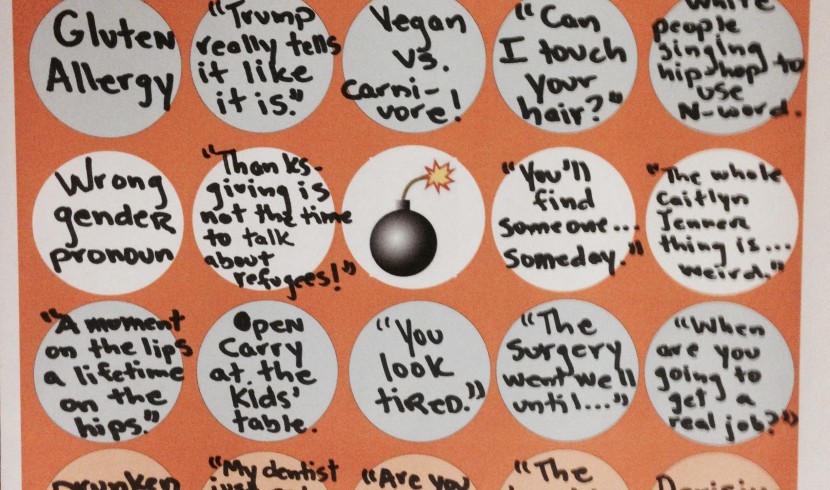 Gluten
Allergy
"Trump
really tells
it like
it is."
Vegan
vs.
Carni-
vore!
"Can
I touch
your
hair?"
White
people
singing
hip hop to
use
N-word.
Wrong
gender
pronoun
"Thanks-
giving is
not the time
to talk
about
refugees!"
"You'll
find
someone...
someday."
"The whole
Caitlyn
Jenner
thing is...
weird."
"A moment
on the lips
a lifetime
on the
hips."
Open
Carry
at the
kids'
table.
"You
look
tired."
"The
surgery
went well
until..."
"When
are you
going to
get a
real job?"
Drunken
"My dentist
"Are you
"The